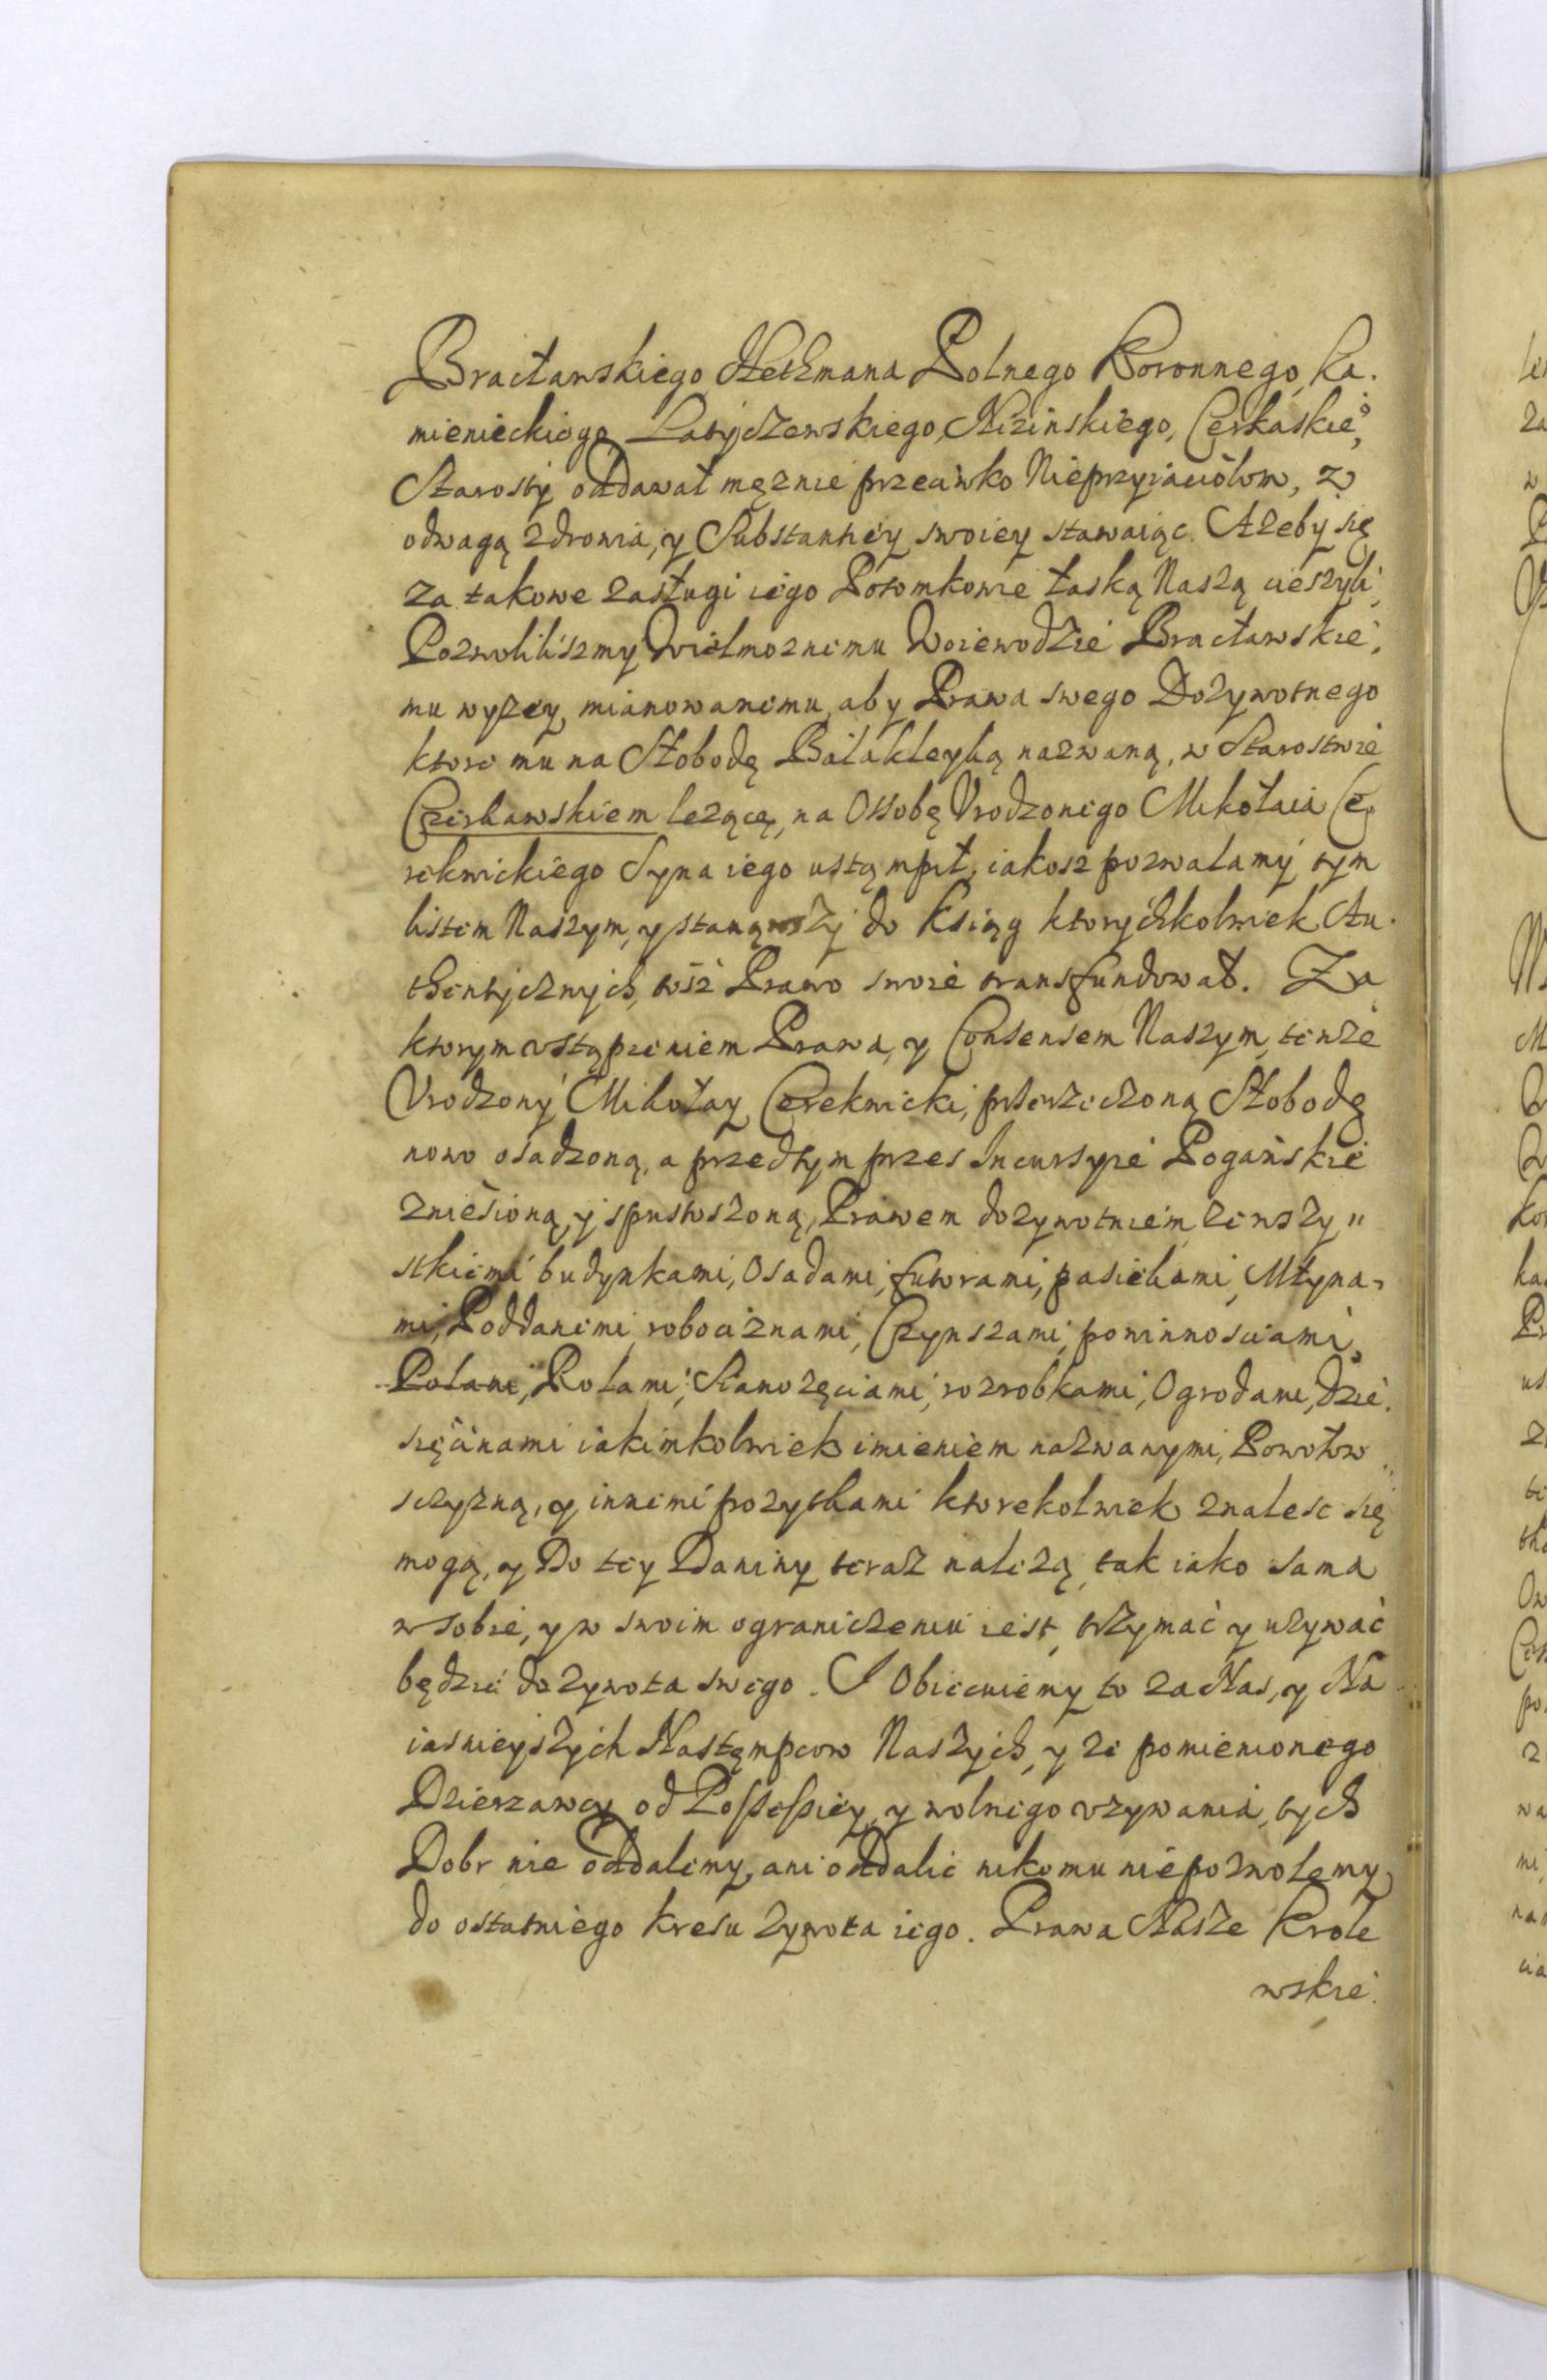 Bracławskiego, Hethmana Polnego Koronnego, Ka.
mienieckiego Latyczewskiego, Nizinskiego, Cerkaskie°,
Starosty oddawał męznie przeciwko Nieprzyiaciołom, z
odwagą zdrowia, y Substantiey swoiey stawaiąc. Azeby się
za takowe zasługi iego Potomkowie łaską Naszą cieszyli,
Pozwoliliszmy Wielmoznemu Woiewodzie Bracławskie,
mu wyzey mianowanemu, aby Prawa swego Dozywotnego
ktore mu na Słobodę Bałakleyką nazwaną, w Starostwie
Czerkawskiem lezącę, na Ossobę Vrodzonego Mikołaia Ce
rekwickiego Syna iego ustąmpił, iakosz pozwalamy tym
listem Naszym, y stanąwszy do Ksiąg ktorychkolwiek Au.
thentycznych, tosz Prawo swoie transfundował. Za
ktorym vstąpieniem Prawa, y Consensem Naszym, tenze
Vrodzony Mikołay Cerekwicki, przerzeczoną Słobodę
nowo osadzoną, a przedtym przes Incursyie Pogańskie
zniesioną, y spustoszoną, Prawem dozywotniem, ze wszy„
stkiemi budynkami, Osadami, futorami, pasiekami, Młyna„
mi, Poddanemi, robociznami, Czynszami, powinnosciami,
Polami, Rolami, Sianozęciami, rozrobkami, Ogrodami, Dzie.
sięcinami iakimkolwiek imieniem nazwanymi, Powołow
sczyzną, y innemi pozytkami ktorekolwiek znalesc się
mogą, y Do tey Daniny teraz nalezą, tak iako sama
w sobie, y w swoim ograniczeniu iest, trzymać y uzywać
będzie do zywota swego. I Obiecuiemy to za Nas, y Na
iasnieyszych Nastąmpcow Naszych, y ze pomienionego
Dzierzawcy od Possessiey, y wolnego vzywania, tych
Dobr nie oddalemy, ani oddalic nikomu nie pozwolemy
do ostatniego kresu zywota iego. Prawa Nasze Krole
wskie